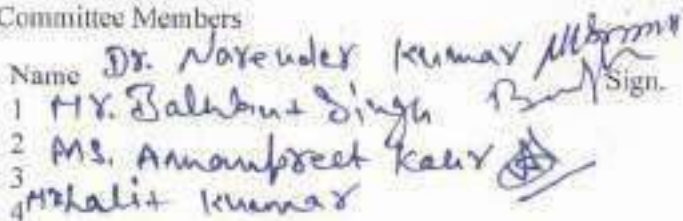 Committee Members
Name Dr. Narender Kumar
Sign.
1 Mr. Balwant Singh
2 Ms. Amanpreet Kaur
3
4 Mr Lalit Kumar